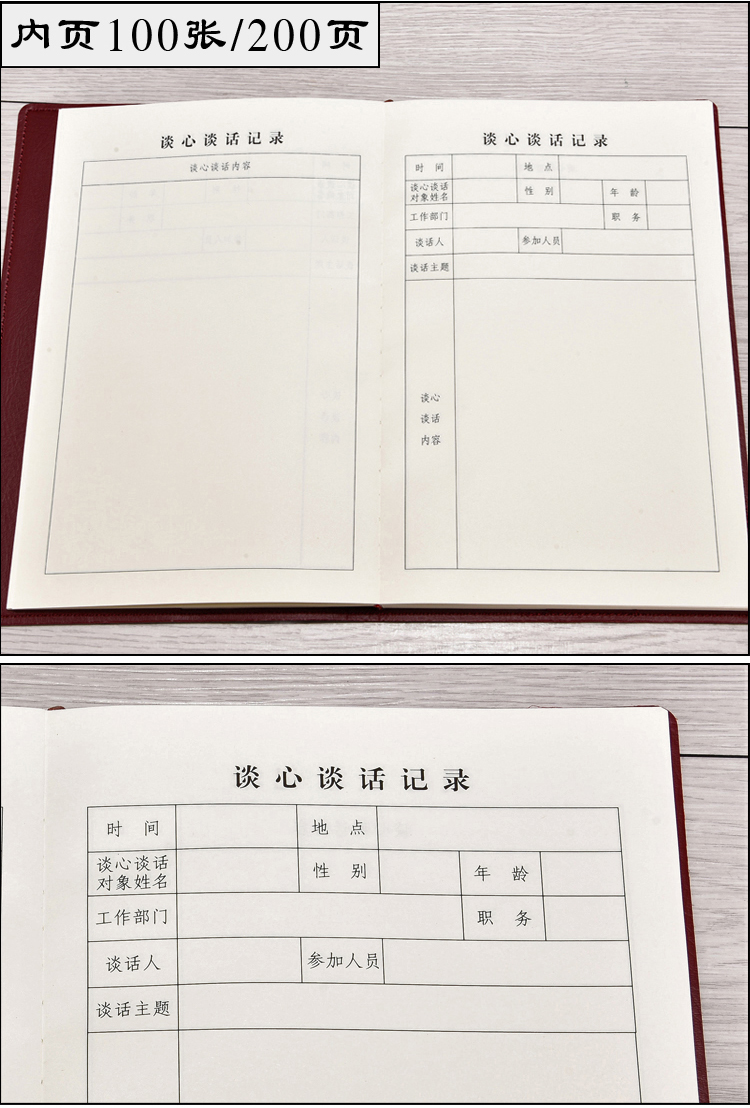 内页100张/200页
谈心谈话记录
谈心谈话内容
谈心谈话记录
时 间 地 点
谈心谈话
对象姓名 性 别 年 龄
工作部门 职 务
谈话人 参加人员
谈话主题
谈心
谈话
内容
谈心谈话记录
时 间 地 点
谈心谈话
对象姓名 性 别 年 龄
工作部门 职 务
谈话人 参加人员
谈话主题